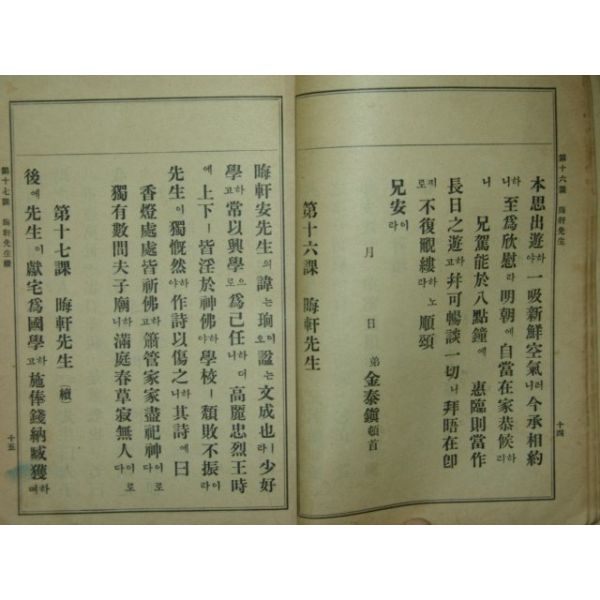 第十六課 晦軒先生
十四
本思出遊하야一吸新鮮空氣러니今承相約
하니至爲欣慰라明朝에自當在家恭候하리
니兄駕能於八點鐘에惠臨則當作
長日之遊하고幷可暢談一切니拜晤在卽
이라不復覼縷하노라順頌
兄安이라
月 日 弟金泰鎭頓首
第十六課 晦軒先生
晦軒安先生의諱는珦이오諡는文成也ㅣ라少好
學하고常以興學으로爲己任하니라高麗忠烈王時
에上下ㅣ皆淫於神佛하야學校ㅣ頹敗不振이라
先生이獨慨然하야作詩以傷之하니其詩에曰
香燈處處皆祈佛하고簫管家家盡祀神이로다
獨有數間夫子廟하니滿庭春草寂無人이로다
第十七課 晦軒先生 (續)
後에先生이獻宅爲國學하고施俸錢納臧獲하며
第十七課 晦軒先生續
十五